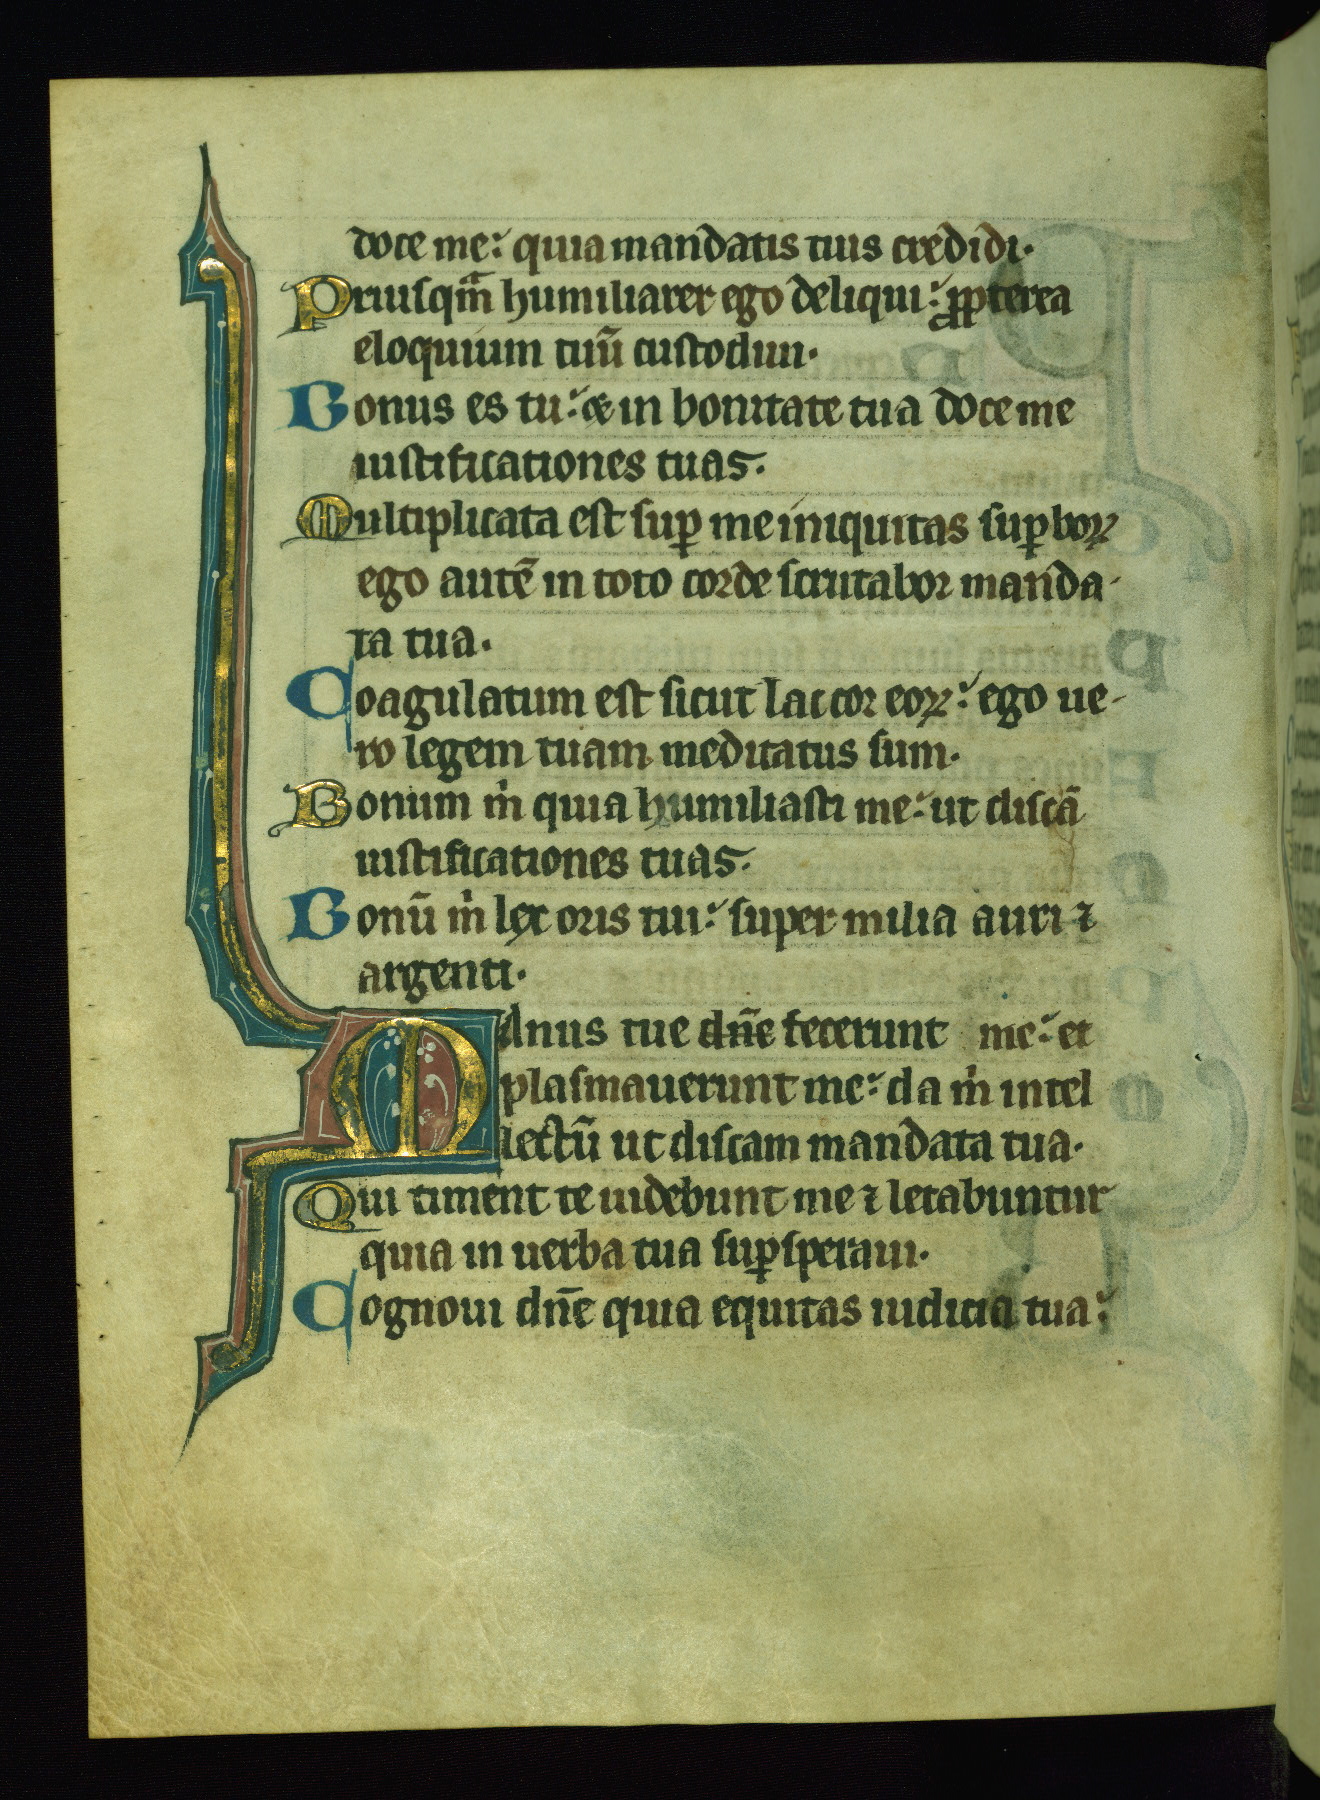 doce me: quia mandatis tuis credidi.
Priusqm̄ humiliarer ego deliqui: ꝓpterea
eloquium tuū custodiui.
Bonus es tu: & in bonitate tua doce me
iustificationes tuas.
Multiplicata est suꝑ me iniquitas suꝑboꝝ
ego autē in toto corde scrutabor manda-
ta tua.
Coagulatum est sicut lac cor eoꝝ: ego ue-
ro legem tuam meditatus sum.
Bonum m̍ quia humiliasti me: ut discā
iustificationes tuas.
Bonū m̍ lex oris tui: super milia auri ⁊
argenti.
Manus tue dn̄e fecerunt me: et
plasmauerunt me: da m̍ intel
lectū ut discam mandata tua.
Qui timent te uidebunt me ⁊ letabuntur
quia in uerba tua suꝑsperaui.
Cognoui dn̄e quia equitas iudicia tua: